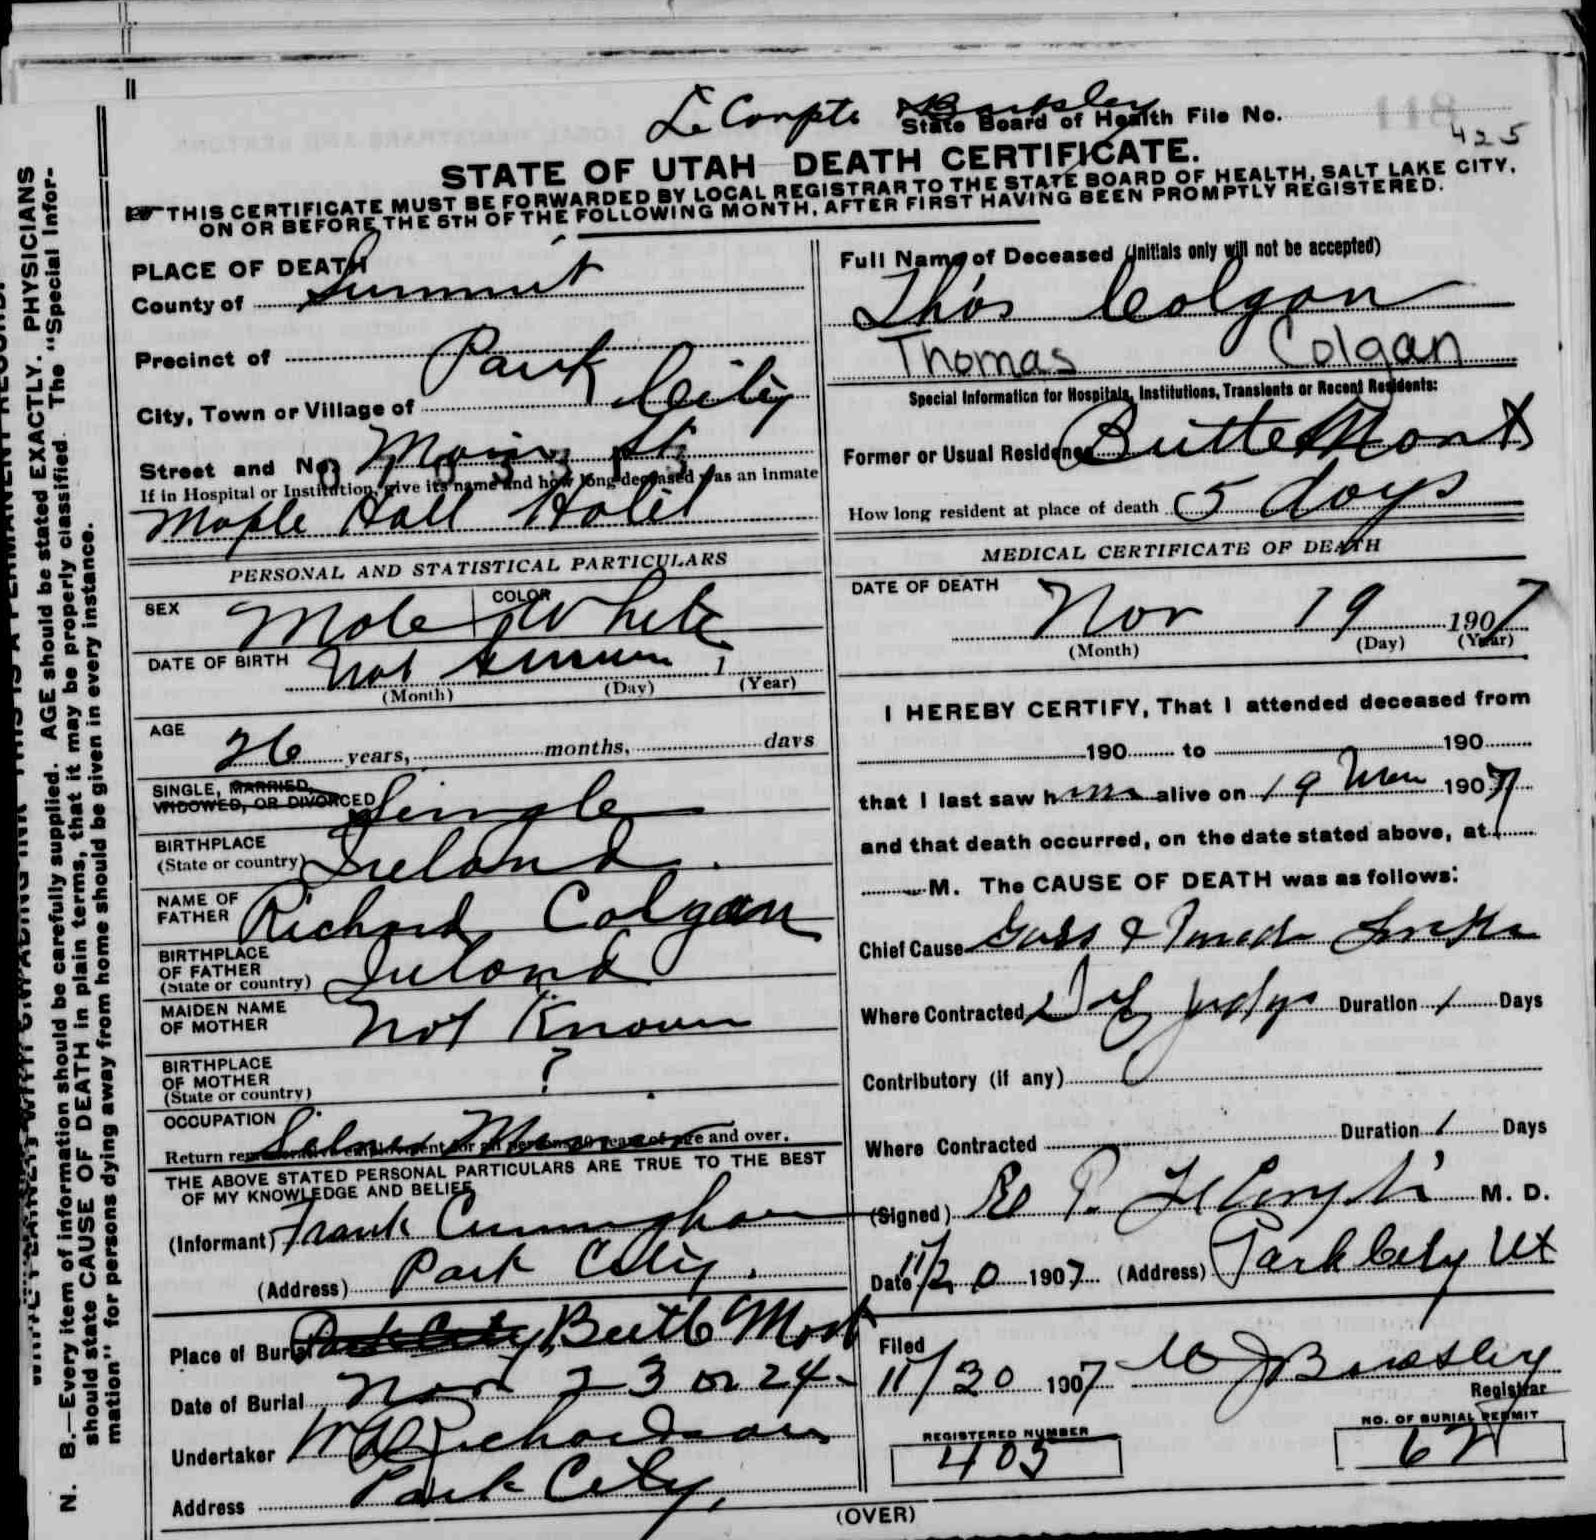 Le Compte Barksley
State Board of Health File No.
425
STATE OF UTAH DEATH CERTIFICATE.
THIS CERTIFICATE MUST BE FORWARDED BY LOCAL REGISTRAR TO THE STATE BOARD OF HEALTH, SALT LAKE CITY,
ON OR BEFORE THE 5TH OF THE FOLLOWING MONTH, AFTER FIRST HAVING BEEN PROMPTLY REGISTERED.
PLACE OF DEATH
County of Summit
Precinct of Park
City, Town or Village of City
Street and No. Main St
If in Hospital or Institution, give its name and how long deceased was an inmate
Maple Hall Hotel
PERSONAL AND STATISTICAL PARTICULARS
SEX Male COLOR White
DATE OF BIRTH Not Known 1
(Month) (Day) (Year)
AGE
26 years, months, days
SINGLE, MARRIED,
WIDOWED, OR DIVORCED Single
BIRTHPLACE
(State or country) Ireland.
NAME OF
FATHER Richard Colgan
BIRTHPLACE
OF FATHER
(State or country) Ireland
MAIDEN NAME
OF MOTHER Not Known
BIRTHPLACE
OF MOTHER ?
(State or country)
OCCUPATION
Return remunerative employment for all persons 10 years of age and over.
THE ABOVE STATED PERSONAL PARTICULARS ARE TRUE TO THE BEST
OF MY KNOWLEDGE AND BELIEF
(Informant) Frank Cunningham
(Address) Park City.
Place of Burial Park City, Butte Mont
Date of Burial Nov 23 or 24-
Undertaker W Richardson
Address Park City,
Full Name of Deceased (Initials only will not be accepted)
Tho's Colgan
Thomas Colgan
Special Information for Hospitals, Institutions, Transients or Recent Residents:
Former or Usual Residence Butte Mont
How long resident at place of death 5 days
MEDICAL CERTIFICATE OF DEATH
DATE OF DEATH
Nov 19 1907
(Month) (Day) (Year)
I HEREBY CERTIFY, That I attended deceased from
190 to 190
that I last saw him alive on 19 Nov 1907
and that death occurred, on the date stated above, at
M. The CAUSE OF DEATH was as follows:
Chief Cause Gass & Powder Smoke
Where Contracted Judge Duration 1 Days
Contributory (if any)
Where Contracted Duration 1 Days
(Signed) P. LeCompte M. D.
Date 11/20 1907 (Address) Park City Ut
Filed
11/30 1907
Registrar
REGISTERED NUMBER
405
NO. OF BURIAL PERMIT
62
(OVER)
N. B.—Every item of information should be carefully supplied. AGE should be stated EXACTLY. PHYSICIANS
should state CAUSE OF DEATH in plain terms, that it may be properly classified. The "Special Infor-
mation" for persons dying away from home should be given in every instance.